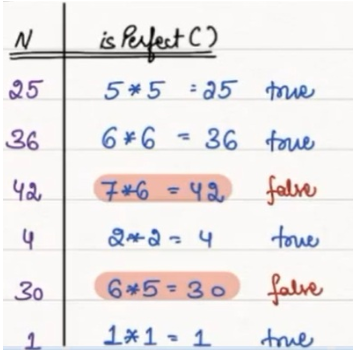 N is Perfect()
25 5*5 = 25 true
36 6*6 = 36 true
42 7*6 = 42 false
4 2*2 = 4 true
30 6*5 = 30 false
1 1*1 = 1 true